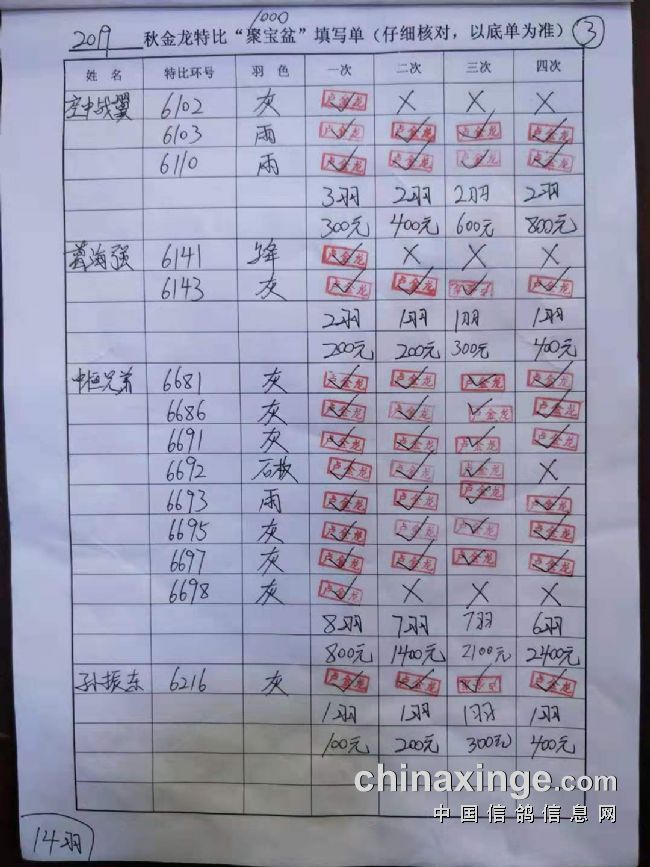 1000
2019 秋金龙特比“聚宝盆”填写单（仔细核对，以底单为准） ③
姓 名 特比环号 羽 色 一次 二次 三次 四次
空中战翼 6102 灰 卢金龙✓ × × ×
6103 雨 卢金龙✓ 卢金龙✓ 卢金龙✓ 卢金龙✓
6110 雨 卢金龙✓ 卢金龙✓ 卢金龙✓ 卢金龙✓
3羽 2羽 2羽 2羽
300元 400元 600元 800元
海强 6141 绛 卢金龙✓ × × ×
6143 灰 卢金龙✓ 卢金龙✓ 卢金龙✓ 卢金龙✓
2羽 1羽 1羽 1羽
200元 200元 300元 400元
中恒兄弟 6681 灰 卢金龙✓ 卢金龙✓ 卢金龙✓ 卢金龙✓
6686 灰 卢金龙✓ 卢金龙✓ 卢金龙✓ 卢金龙✓
6691 灰 卢金龙✓ 卢金龙✓ 卢金龙✓ 卢金龙✓
6692 石板 卢金龙✓ 卢金龙✓ 卢金龙✓ ×
6693 雨 卢金龙✓ 卢金龙✓ 卢金龙✓ 卢金龙✓
6695 灰 卢金龙✓ 卢金龙✓ 卢金龙✓ 卢金龙✓
6697 灰 卢金龙✓ 卢金龙✓ 卢金龙✓ 卢金龙✓
6698 灰 卢金龙✓ × × ×
8羽 7羽 7羽 6羽
800元 1400元 2100元 2400元
孙振东 6216 灰 卢金龙✓ 卢金龙✓ 卢金龙✓ 卢金龙✓
1羽 1羽 1羽 1羽
100元 200元 300元 400元
chinaxinge.com
中国信鸽信息网
14羽